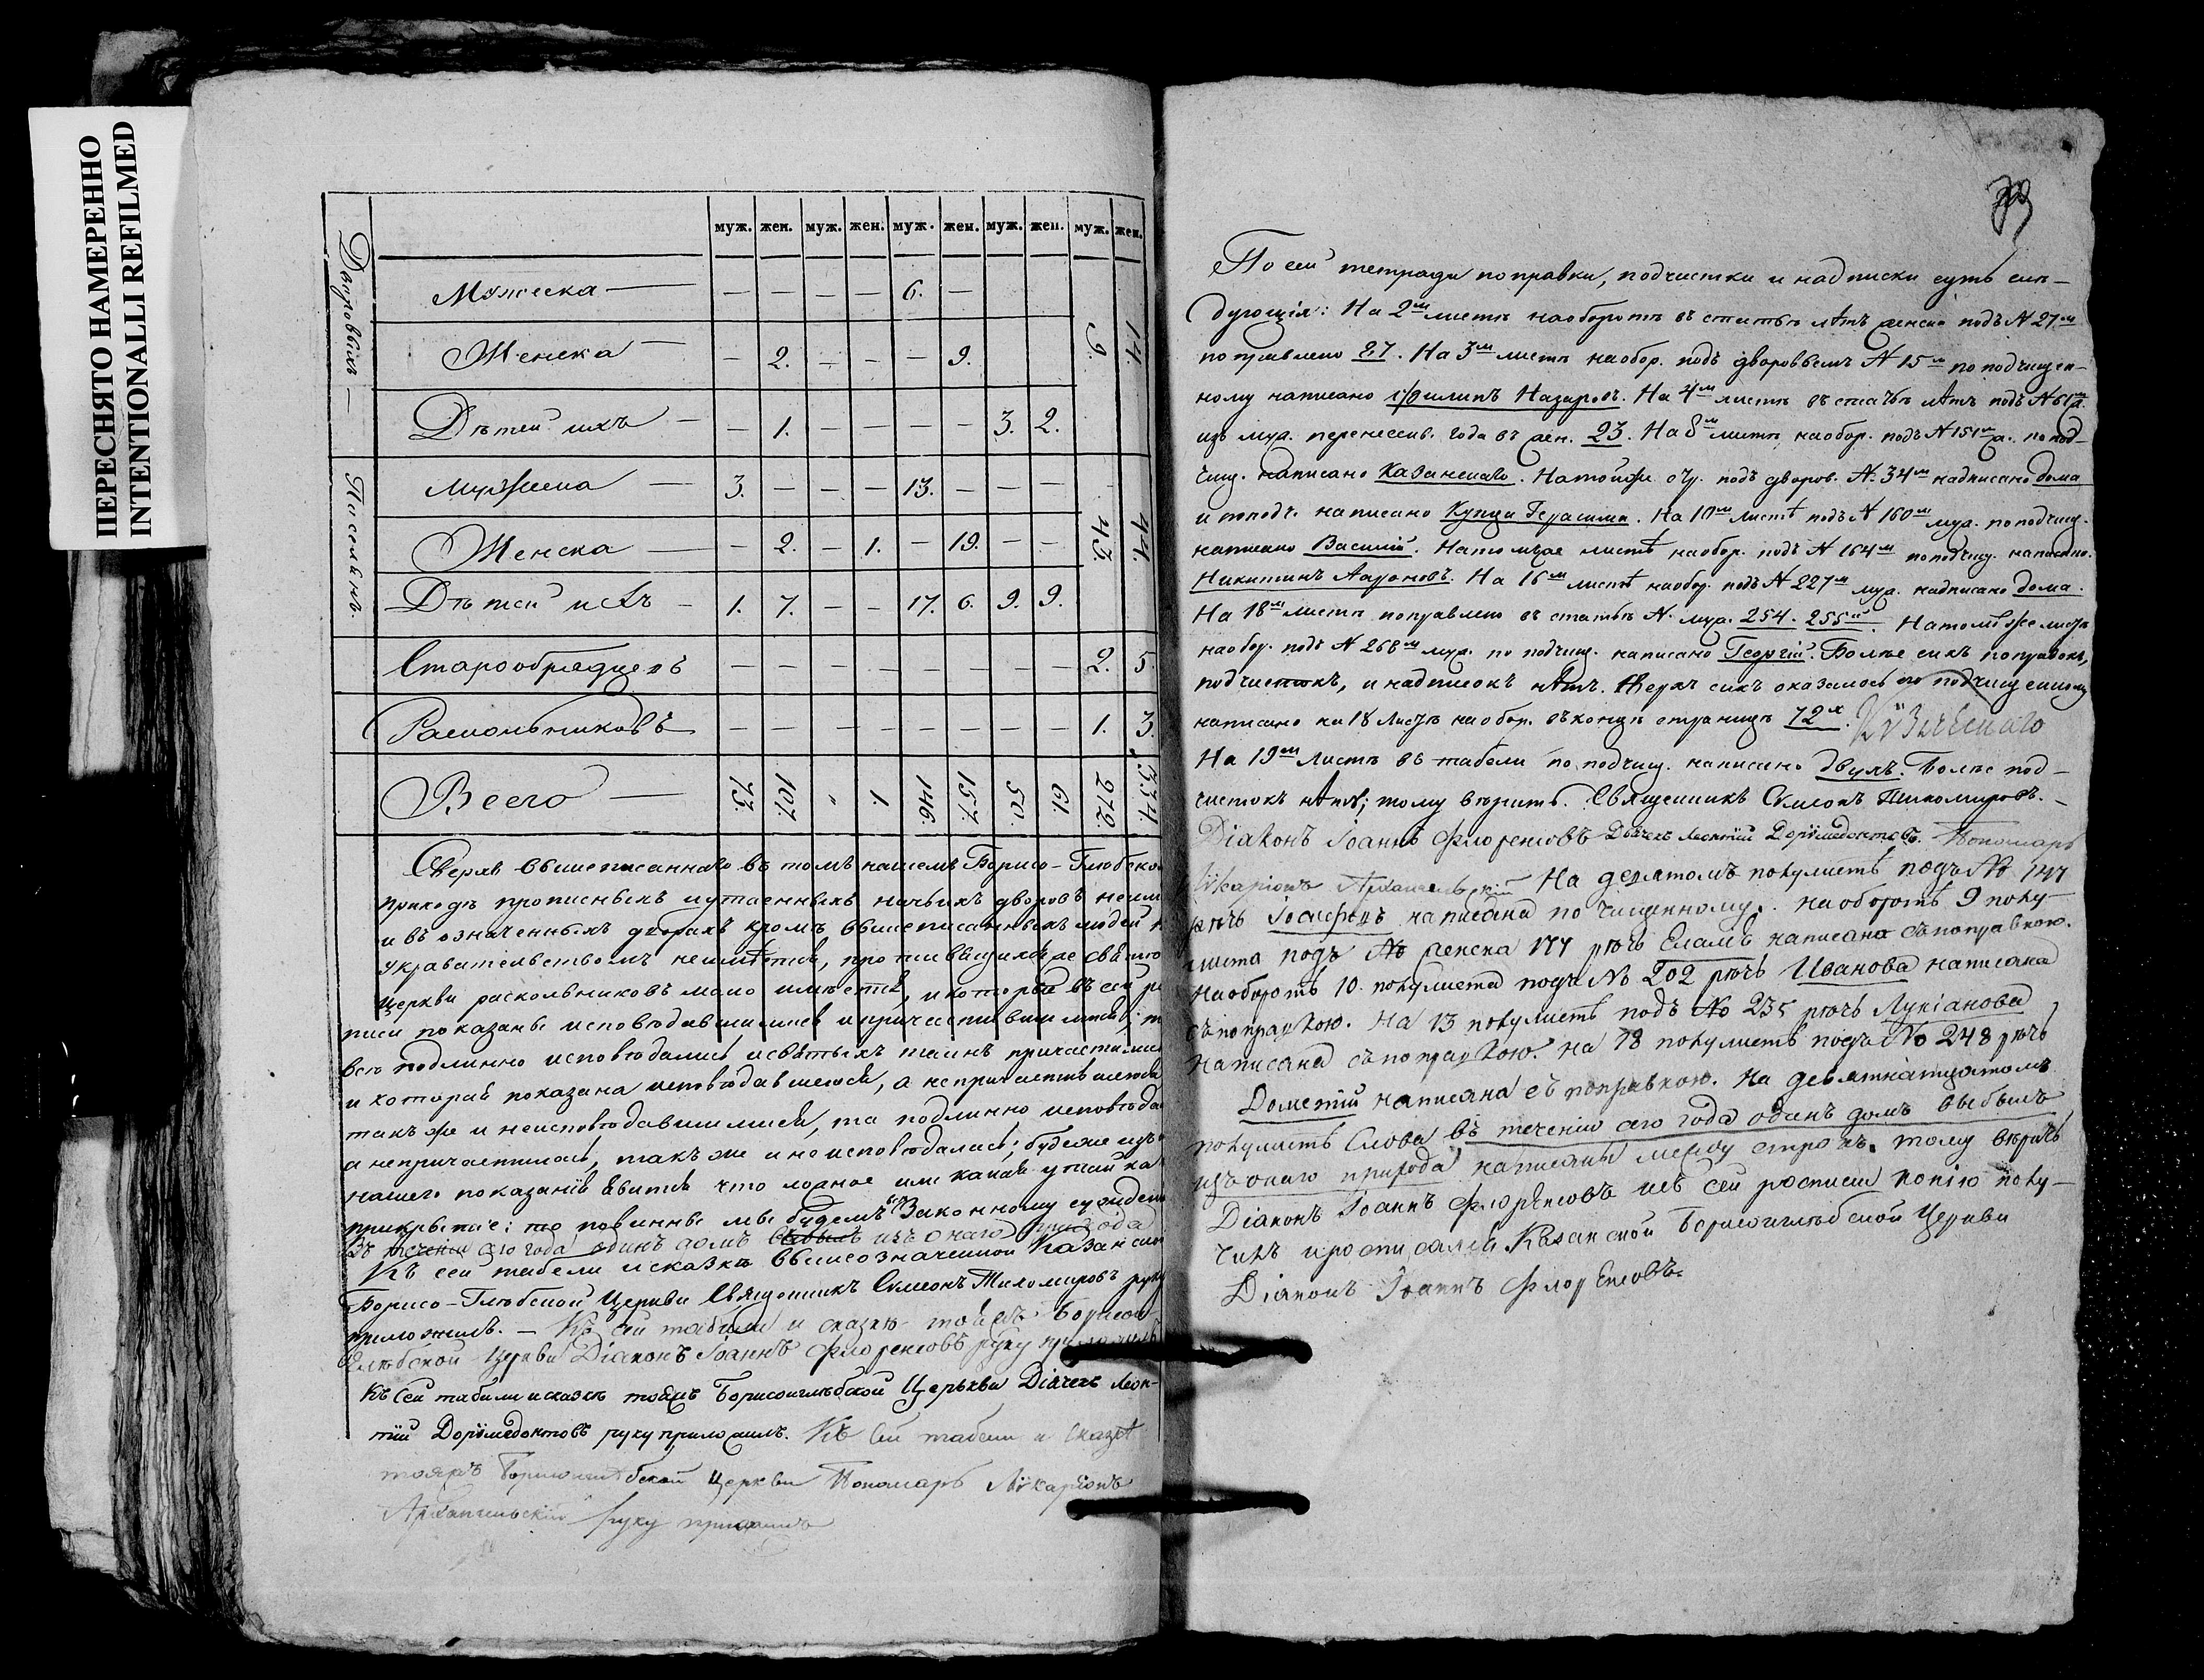 ПЕРЕСНЯТО НАМЕРЕННО
INTENTIONALLI REFILMED
муж. жен. муж. жен. муж. жен. муж. жен. муж. жен.
Дворовыхъ —
Мужеска — — — — — 6. —
Женска — — 2. — — — 9.
9. 14.
Дѣтей ихъ — — 1. — — — — 3. 2.
Поселянъ.
Мужеска — 3. — — — 13. — — —
Женска — — 2. — 1. — 19. — —
43. 44.
Дѣтей ихъ — 1. 7. — — 17. 6. 9. 9.
Старообрядцевъ — — — — — — — — 2. 5.
Раскольниковъ — — — — — — — — 1. 3.
Всего — 73. 107. " 1. 146. 157. 50. 61. 272. 334.
Сверхъ вышеписаннаго въ томъ нашемъ Борисо-Глѣбско
приходѣ прописныхъ и утаенныхъ ничьихъ дворовъ неим
и въ означенныхъ дворахъ кромѣ вышеписанныхъ людей
укравительствомъ неимѣется, противящихся же святой
Церкви раскольниковъ мало имѣется, и которыя въ сей ро
писи показаны исповѣдавшимися и причастившимися; т
всѣ подлинно исповѣдались и святыхъ таинъ причастились
и которая показана исповѣдавшеюся, а непричастившеюся
такъ же и неисповѣдавшимися, та подлинно исповѣда
а непричастилась, такъ же и не исповѣдалась; будеже изъ
нашего показанія явится что ложное или какая утайка
прикрытіе: то повинны мы будемъ Законному сужденію
Въ теченіи сего года одинъ домъ выбылъ изъ онаго прихода
Къ сей табели и сказкѣ вышеозначенной Казанской
Борисо-Глѣбской Церкви Священникъ Симеонъ Тихомировъ руку
приложилъ. — Къ сей табели и сказкѣ тойже Борисо-
глѣбской Церкви Діаконъ Іоаннъ Флоренсовъ руку приложилъ
Къ сей табели и сказкѣ тояжъ Борисоглѣбской Церькви Дьячекъ Леон-
тій Доримедонтовъ руку приложилъ. Къ сей табели и сказкѣ
тояжъ Борисоглѣбской Церкви Пономарь Іларіонъ
Архангельскій руку приложилъ
По сей тетради поправки, подчистки и надписки суть слѣ-
дующія: На 2мъ листѣ наоборотѣ въ статьѣ лѣтъ женска подъ № 27мъ
поправлено 27. На 3мъ листѣ наобор. подъ дворовымъ № 15м по подчищен-
ному написано Филипъ Назаровъ. На 4мъ листѣ въ статьѣ лѣтъ подъ № 61м
изъ муж. перенесен. года въ жен. 23. На 8м листѣ наобор. подъ № 151м по под-
чищ. написано Казанскаго. На тойже стр. подъ дворов. № 34м надписано дома
и по подч. написано Купца Герасима. На 10м листѣ подъ № 160м муж. по подчищ.
написано Василій. На томъже листѣ наобор. подъ № 164м по подчищ. написано
Никитинъ Аароновъ. На 16м листѣ наобор. подъ № 227м муж. надписано дома.
На 18м листѣ поправлено въ статьѣ № муж. 254. 255й. На томъ же листѣ
наобор. подъ № 268м муж. по подчищ. написано Георгій. Болѣе сихъ поправокъ,
подчистокъ, и надписокъ нѣтъ. Сверхъ сихъ оказалось по подчищенному
написано на 18 листѣ наобор. въ концѣ страницы 72х.
На 19м листѣ въ табели по подчищ. написано двухъ. Болѣе под-
чистокъ нѣтъ; тому вѣрить. Священникъ Симеонъ Тихомировъ. —
Діаконъ Іоаннъ Флоренсовъ Дьячекъ Леонтій Доримедонтовъ. Пономарь
Іларіонъ Архангельскій На девятомъ полулистѣ подъ № 147
рѣчь Іосифецъ написана по чищенному. наоборотѣ 9 полу
листа подъ № женска 177 рѣчь написана съ поправкою.
наоборотѣ 10. полулиста подъ № 202 рѣчь Иванова написана
съ поправкою. На 13 полулистѣ подъ № 235 рѣчь Лукіанова
написана съ поправкою. на 18 полулистѣ подъ № 248 рѣчь
Дометій написана съ поправкою. На девятнатцатомъ
полулистѣ слова въ теченіи сего года одинъ домъ выбылъ
изъ онаго прихода написаны между строкъ. тому вѣрить
Діаконъ Іоаннъ Флоренсовъ изъ сей росписи копію полу-
чилъ и росписался Казанской Борисоглѣбской Церкви
Діаконъ Іоаннъ Флоренсовъ.